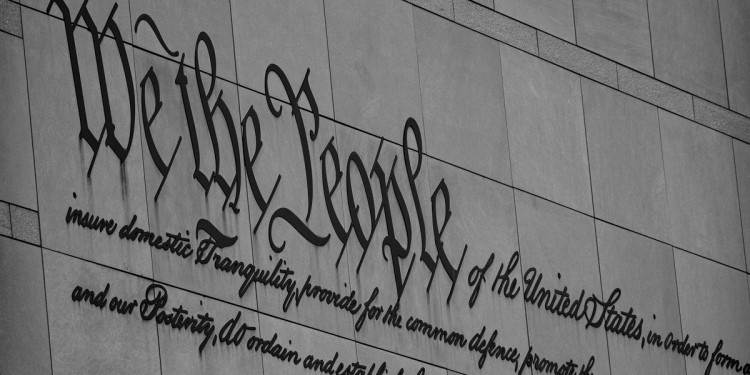 We the People of the United States, in order to form a
insure domestic Tranquility, provide for the common defence, promote the
and our Posterity, do ordain and establish